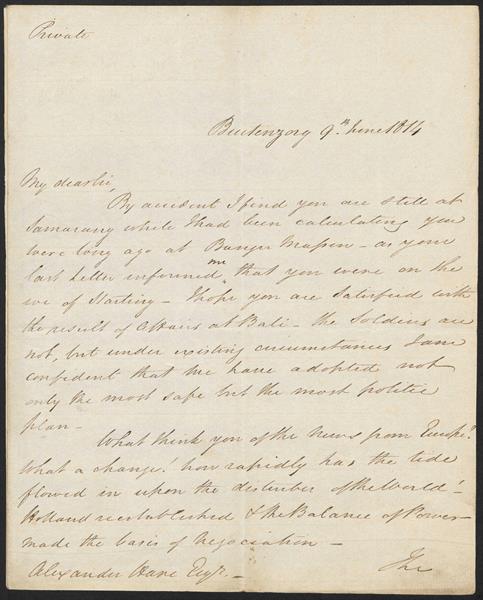 Private
Buitenzorg 9th June 1814
My dear Sir,
By accident I find you are still at
Samarang while I had been calculating you
were long ago at Banger Massin - as your
last Letter informed me that you were on the
eve of Starting - I hope you are satisfied with
the result of Affairs at Bali - the Soldiers are
not, but under existing circumstances I am
confident that we have adopted not
only the most safe but the most politic
plan -
What think you of the News from Europe?
What a change! how rapidly has the tide
flowed in upon the disturber of the World!
Holland reestablished & the Balance of Power
made the basis of Negociation -
The
Alexander Hare Esqr. -